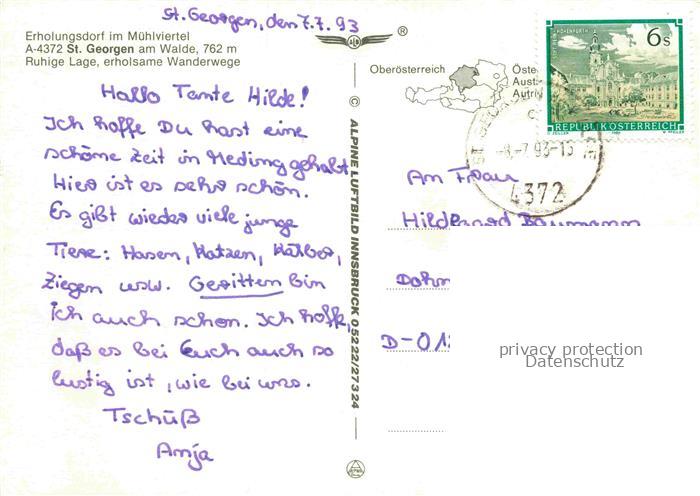 St. Georgen, den 7.7.93
Erholungsdorf im Mühlviertel
A-4372 St. Georgen am Walde, 762 m
Ruhige Lage, erholsame Wanderwege
Hallo Tante Hilde!
Ich hoffe Du hast eine
schöne Zeit in gehabt.
Hier ist es sehr schön.
Es gibt wieder viele junge
Tiere: Hasen, Katzen, Kälber,
Ziegen usw. Geritten bin
ich auch schon. Ich hoffe,
daß es bei Euch auch so
lustig ist, wie bei uns.
Tschüß
Anja
© ALPINE LUFTBILD INNSBRUCK 05222/27324
®
Oberösterreich
Öste
Aust
Autri
6s
REPUBLIK ÖSTERREICH
-8.-7.93-15
4372
An Frau
Hildegard Baumann
D-01
privacy protection
Datenschutz